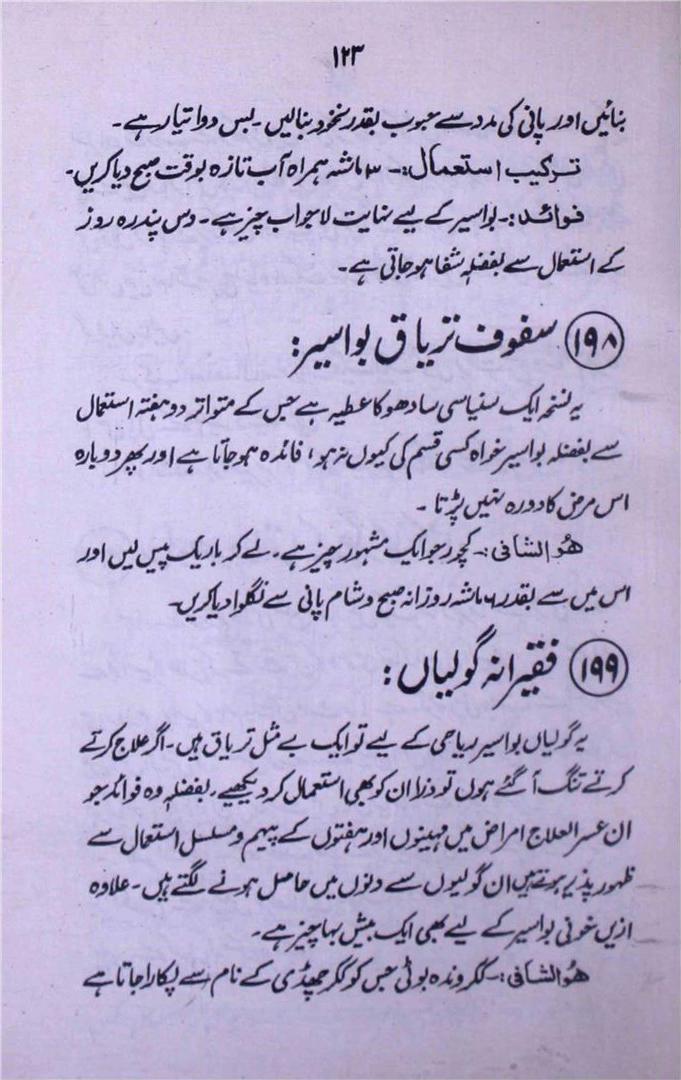 ۱۲۳
بنائیں اور پانی کی مدد سے حبوب بقدر نخود بنالیں ۔ بس دوا تیار ہے ۔
ترکیب استعمال :۔ ۳ ماشہ ہمراہ آب تازہ بوقت صبح دیا کریں۔
فوائد :۔ بواسیر کے لیے نہایت لاجواب چیز ہے ۔ دس پندرہ روز
کے استعمال سے بفضلہٖ شفا ہو جاتی ہے ۔
۱۹۸ سفوف تریاق بواسیر :
یہ نسخہ ایک سنیاسی سادھو کا عطیہ ہے جس کے متواتر دو ہفتہ استعمال
سے بفضلہٖ بواسیر خواہ کسی قسم کی کیوں نہ ہو ، فائدہ ہو جاتا ہے اور پھر دوبارہ
اس مرض کا دورہ نہیں پڑتا ۔
ھُو الشافی :۔ کچور جو ایک مشہور چیز ہے ۔ لے کر باریک پیس لیں اور
اس میں سے بقدر ۶ ماشہ روزانہ صبح و شام پانی سے نگلوا دیا کریں۔
۱۹۹ فقیرانہ گولیاں :
یہ گولیاں بواسیر ریاحی کے لیے تو ایک بے مثل تریاق ہیں ۔ اگر علاج کرتے
کرتے تنگ آ گئے ہوں تو ذرا ان کو بھی استعمال کر دیکھیے ۔ بفضلہٖ وہ فوائد جو
ان عسر العلاج امراض میں مہینوں اور ہفتوں کے پیہم و مسلسل استعمال سے
ظہور پذیر ہوتے ہیں ان گولیوں سے دنوں میں حاصل ہونے لگتے ہیں ۔ علاوہ
ازیں خونی بواسیر کے لیے بھی ایک بیش بہا چیز ہے ۔
ھُو الشافی :۔ ککروندہ بوٹی جس کو ککر چھڈی کے نام سے پکارا جاتا ہے